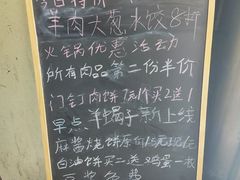 今日特价
羊肉大葱水饺8折
火锅优惠活动
所有肉品第二份半价
门钉肉饼 买2送1
早点 羊蝎子新上线
麻酱烧饼
白油饼买二送
豆浆免费